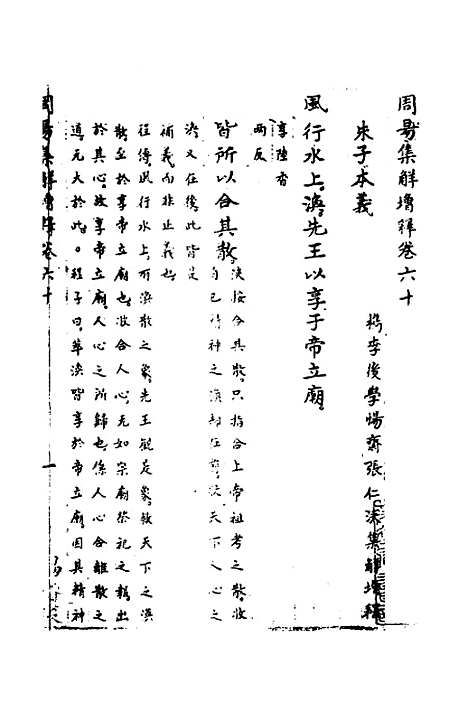 周易集解增釋卷六十
檇李後學惕齋張仁浹集解增釋
朱子本義
風行水上渙先王以享于帝立廟
享陸杳
兩反
皆所以合其散
浹按合其散只指合上帝祖考之散收
自己精神之渙却在前收天下人心之
渙又在後此皆是
補義而非正義也
程傳風行水上有渙散之象先王觀是象救天下之渙
散至於享帝立廟也收合人心无如宗廟祭祀之報出
於其心故享帝立廟人心之所歸也係人心合離散之
道无大於此○程子曰萃渙皆享於帝立廟因其精神
周易集解增釋卷六十
一